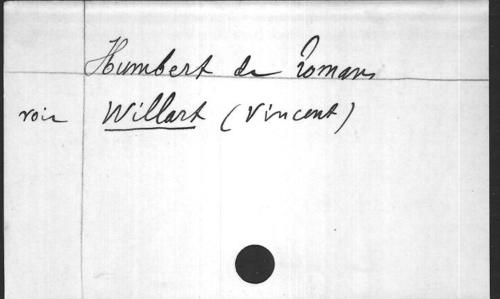 Humbert de Romans
voir Willart (Vincent)